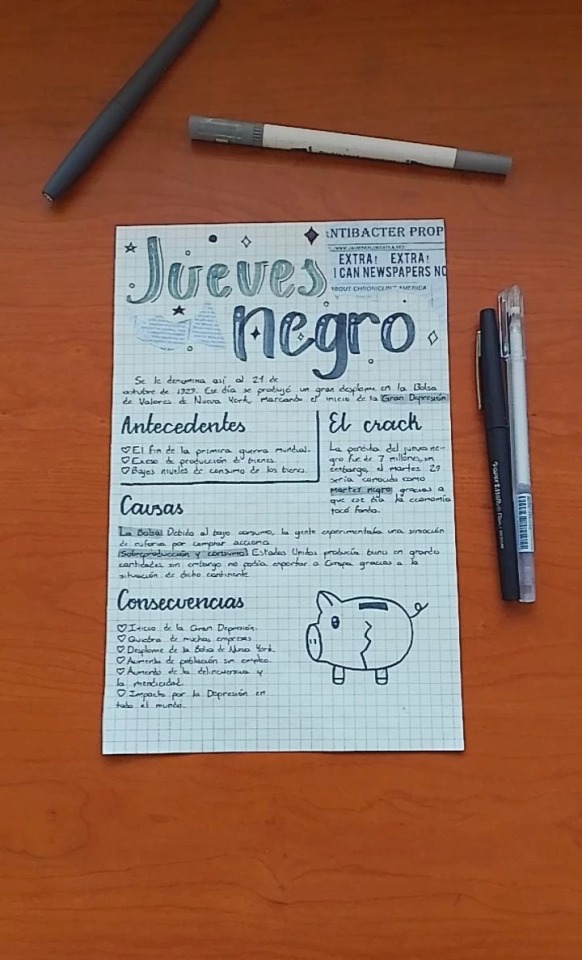 Jueves
negro
ANTIBACTER PROP
EXTRA! EXTRA!
I CAN NEWSPAPERS NO
ABOUT CHRONICLIN AMERICA
Se le denomina así al 21 de
octubre de 1929. Ese día se produjo un gran desplome en la Bolsa
de Valores de Nueva York, marcando el inicio de la Gran Depresión
Antecedentes
El fin de la primera guerra mundial.
Exeso de producción de bienes.
Bajos niveles de consumo de los bienes.
El crack
La perdida del jueves ne-
gro fue de 7 millones, sin
embargo, el martes 29
sería conocido como
martes negro gracias a
que ese día la economía
tocó fondo.
Causas
La Bolsa: Debido al bajo consumo, la gente experimentaba una sensación
de euforia por comprar acciones.
Sobreproducción y consumo: Estados Unidos producía bienes en grandes
cantidades sin embargo no podía exportar a Europa gracias a la
situación de dicho continente.
Consecuencias
Inicio de la Gran Depresión.
Quiebra de muchas empresas
Desplome de la Bolsa de Nueva York.
Aumento de población sin empleo.
Aumento de la delincuencia y
la mendicidad.
Impacto por la Depresión en
todo el mundo.